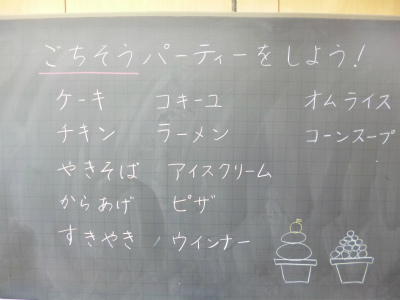 ごちそうパーティーをしよう!
ケーキ コキーユ オムライス
チキン ラーメン コーンスープ
やきそば アイスクリーム
からあげ ピザ
すきやき ウインナー